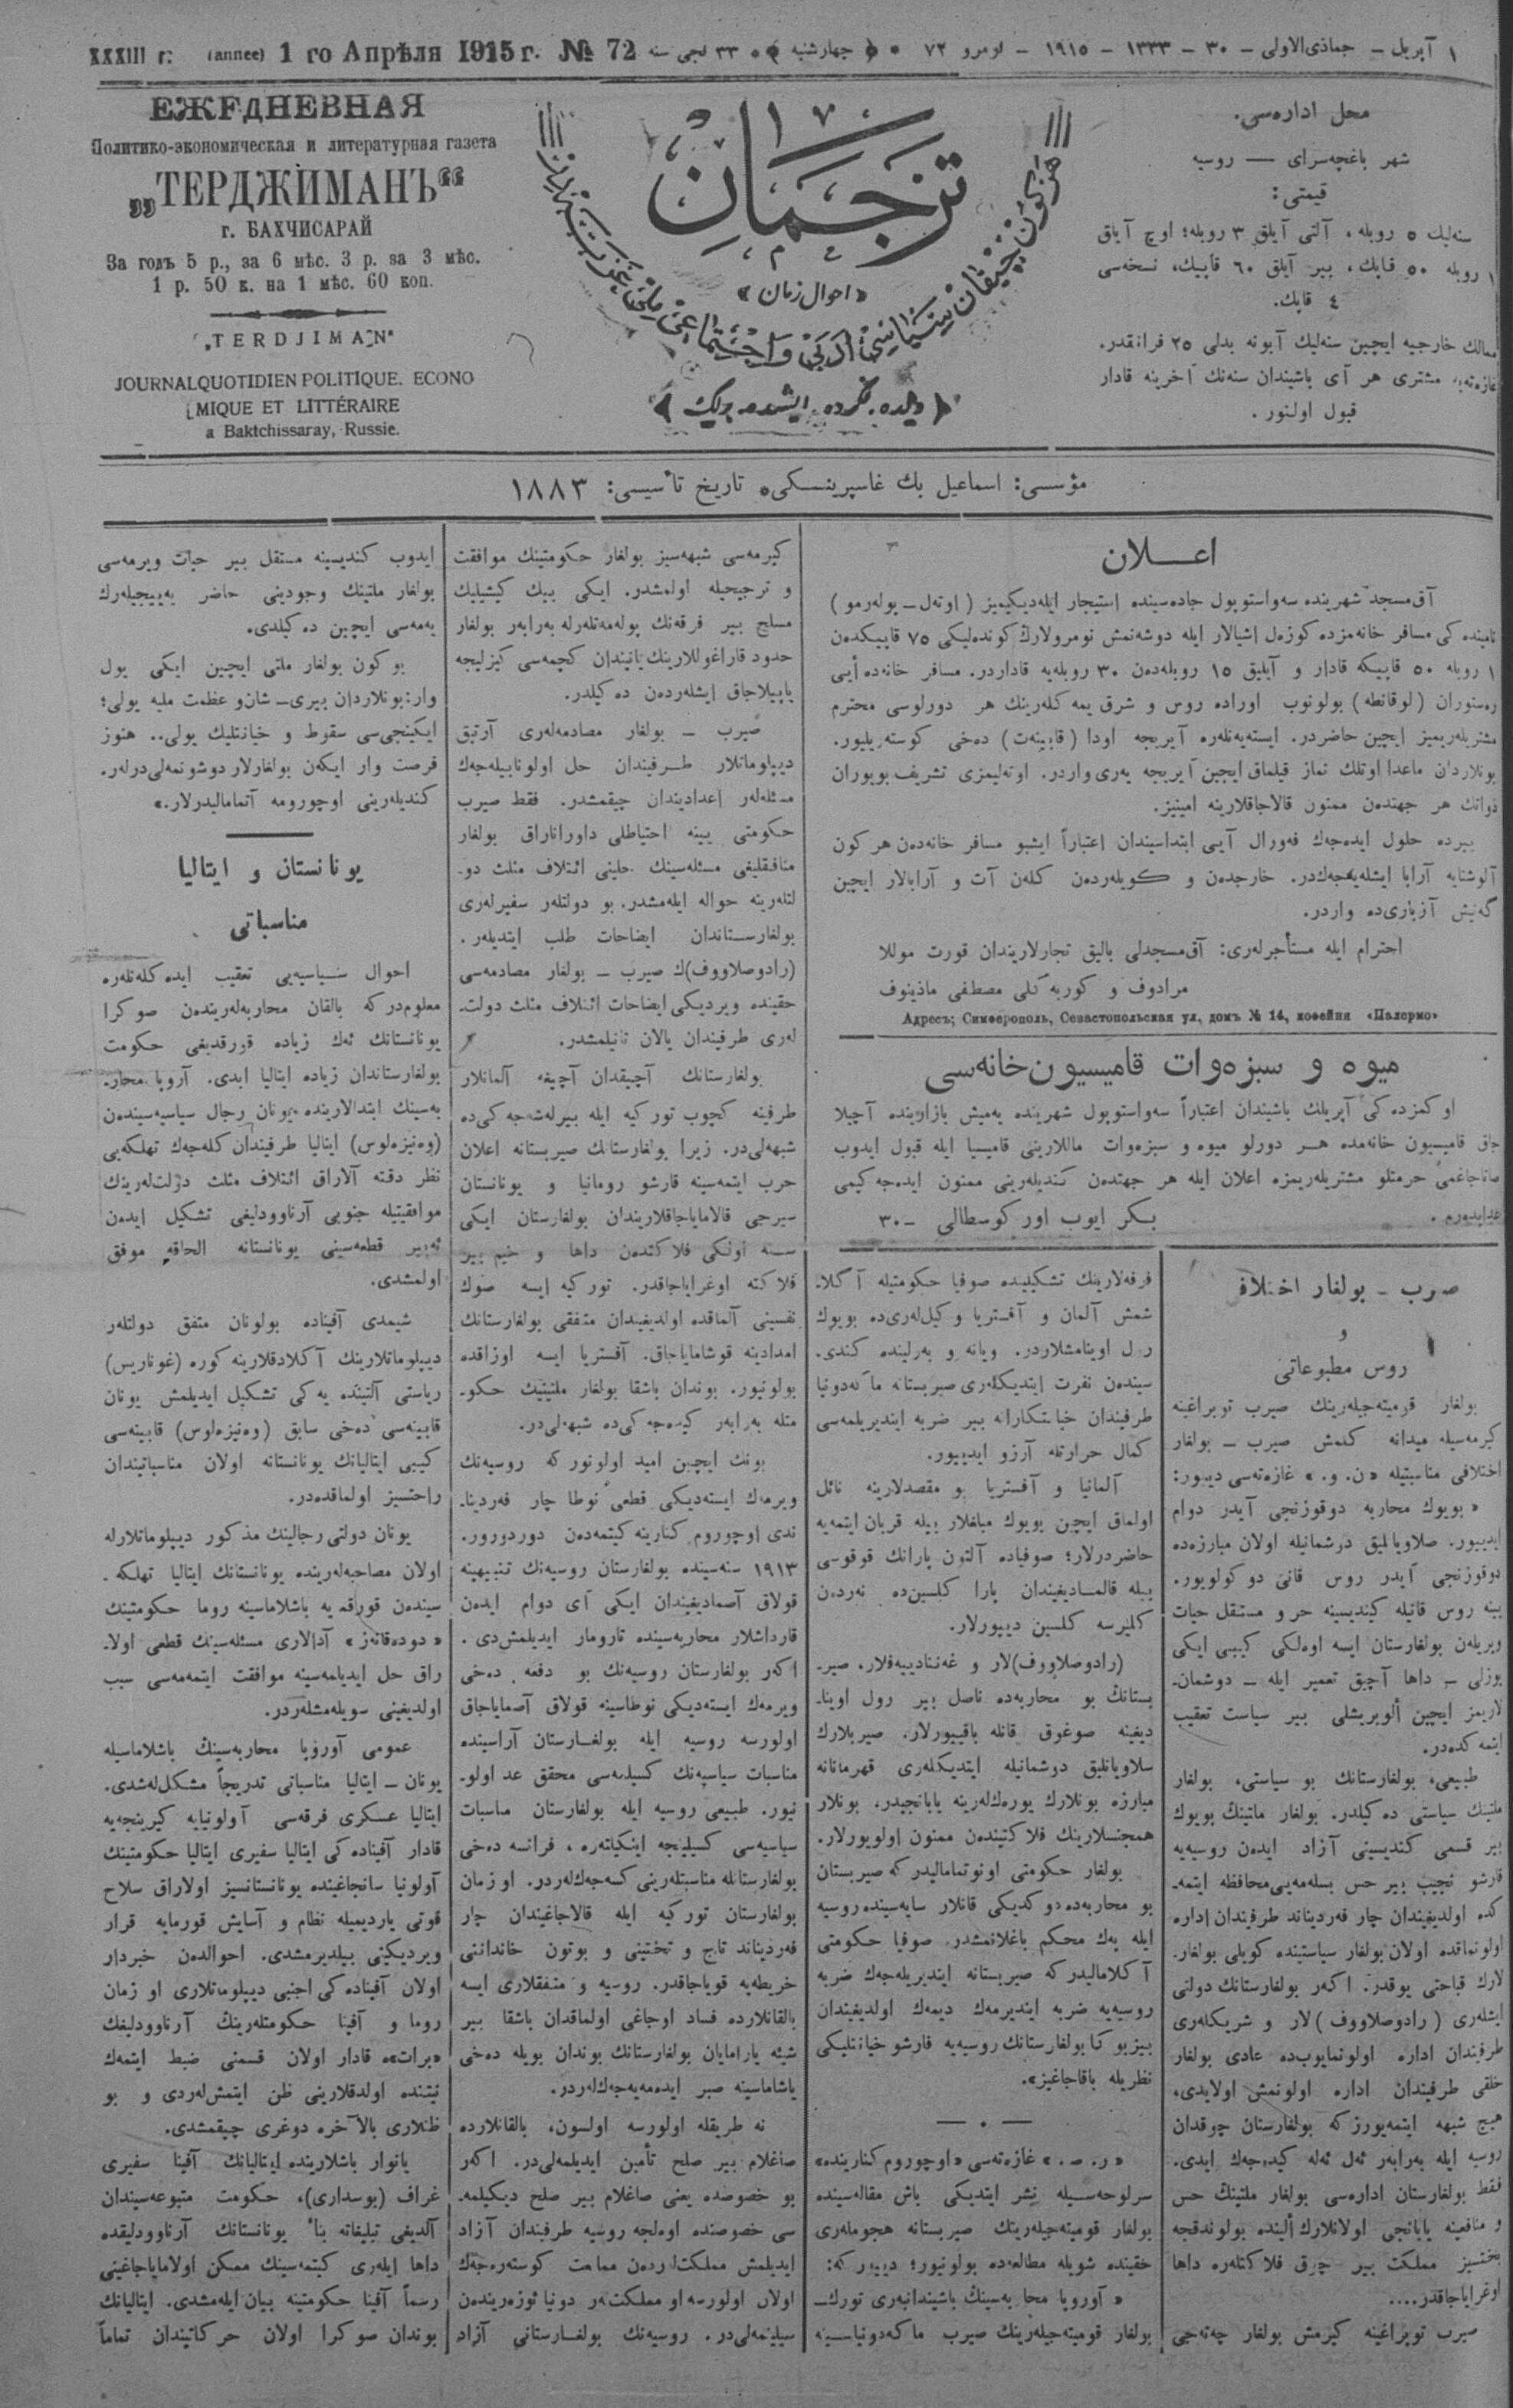 XXXIII г. (annee) 1 го Апрѣля 1915 г. № 72
١ آپریل – جماذی‌الاولی – ٣٠ – ١٣٣٣ – ١٩١٥ – نومرو ٧٢ • ﴿ چهارشنبه ﴾ • ٣٣ نجی سنه
ЕЖЕДНЕВНАЯ
Политико-экономическая и литературная газета
„ТЕРДЖИМАНЪ“
г. БАХЧИСАРАЙ
За годъ 5 р., за 6 мѣс. 3 р. за 3 мѣс.
1 р. 50 к. на 1 мѣс. 60 коп.
„TERDJIMAN“
JOURNAL QUOTIDIEN POLITIQUE. ECONO
MIQUE ET LITTÉRAIRE
a Baktchissaray, Russie.
ترجمان
«احوال زمان»
﴿ دلده، فکرده، ایشده برلك ﴾
محل اداره‌سی.
شهر باغچه‌سرای — روسیه
قیمتی:
سنه‌لیك ٥ روبله، آلتی آیلق ٣ روبله؛ اوچ آیاق
١ روبله ٥٠ قاپك، بیر آیلق ٦٠ قاپیك، نسخه‌سی
٤ قاپك.
ممالك خارجیه ایچین سنه‌لیك آبونه بدلی ٢٥ فرانقدر.
غازه‌ته‌یه مشتری هر آی باشیندان سنه‌نك آخرینه قادار
قبول اولنور.
مؤسسی: اسماعیل بك غاسپرینسكی، تاریخ تأسیسی: ١٨٨٣
اعـــلان
آق‌مسجد شهرینده سه‌واستوپول جاده‌سینده استیجار ایله‌دیكیمیز (اوته‌ل – پوله‌رمو)
نامینده كی مسافر خانه‌مزده كوزه‌ل اشیالار ایله دوشه‌نمش نومرولارڭ كونده‌لیكی ٧٥ قاپیكدن
١ روبله ٥٠ قاپیكه قادار و آیلیق ١٥ روبله‌دن ٣٠ روبله‌یه قاداردر. مسافر خانه‌ده أیی
ره‌ستوران (لوقانطه) بولونوب اوراده روس و شرق یمه كله‌رینك هر دورلوسی محترم
مشتریله‌ریمیز ایچین حاضردر. ایسته‌یه‌نله‌ره آیریجه اودا (قابینه‌ت) دخی كوسته‌ریلیور.
بونلاردان ماعدا اوتلك نماز قیلماق ایچین آیریجه یه‌ری واردر. اوته‌لیمزی تشریف بویوران
ذواتك هر جهتدن ممنون قالاجاقلارینه امینیز.
بیرده حلول ایده‌جك فه‌ورال آیی ابتداسیندان اعتباراً ایشبو مسافر خانه‌دن هر كون
آلوشتایه آرابا ایشله‌یه‌جكدر. خارجدن و كویله‌ردن كله‌ن آت و آرابالار ایچین
گه‌نیش آزباری‌ده واردر.
احترام ایله مستأجرله‌ری: آق‌مسجدلی بالیق تجارلاریندان قورت موللا
مرادوف و كوربه كلی مصطفی ماذینوف
Адресъ; Симферополь, Севастопольская ул, домъ № 14, кофейня «Палермо»
میوه و سبزه‌وات قامیسیون‌خانه‌سی
او كمزده كی آپریلك باشیندان اعتباراً سه‌واستوپول شهرینده یه‌میش بازارینده آچیلا
جاق قامیسیون خانه‌مده هـر دورلو میوه و سبزه‌وات ماللارینی قامیسیا ایله قبول ایدوب
صاتاجاغمی حرمتلو مشتریله‌ریمزه اعلان ایله هر جهتدن كندیله‌رینی ممنون ایده‌جه كیمی
بـكر ایوب اور كوسطالی – ٣٠
صرب – بولغار اختلافی
و
روس مطبوعاتی
بولغار قومیته‌جیله‌رینك صیرب توپراغینه
كیرمه‌سیله میدانه كلمش صیرب – بولغار
اختلافی مناسبتیله «ن. و.» غازه‌ته‌سی دییور:
«بویوك محاربه دوقوزنجی آیدر دوام
ایدییور. صلاویانلیق دوشمانیله اولان مبارزه‌ده
دوقوزنجی آیدر روس قانی دو كولویور.
ینه روس قانیله كندیسینه حر و مستقل حیات
ویریلن بولغارستان ایسه اوه‌لكی كیبی ایكی
یوزلی – داها آچیق تعمیر ایله – دوشمان-
لاریمز ایچین ألویریشلی بیر سیاست تعقیب
ایتمه كده‌در.
طبیعی، بولغارستانك بو سیاستی، بولغار
ملتینك سیاستی ده كیلدر. بولغار ملتینڭ بویوك
بیر قسمی كندیسینی آزاد ایده‌ن روسیه‌یه
قارشو نجیب بیر حس بسله‌مه‌یی محافظه ایتمه-
كده اولدیغیندان چار فه‌ردیناند طرفیندان اداره
اولونماقده اولان بولغار سیاستینده كویلی بولغار-
لارك قباحتی یوقدر. اكه‌ر بولغارستانك دولتی
ایشله‌ری (رادوصلاووف)لار و شریكله‌ری
طرفیندان اداره اولونمایوب‌ده عادی بولغار
خلقی طرفیندان اداره اولونمش اولایدی،
هیچ شبهه ایتمه‌یورز كه بولغارستان چوقدان
روسیه ایله به‌رابه‌ر ئه‌ل ئه‌له كیده‌جك ایدی.
فقط بولغارستان اداره‌سی بولغار ملتینڭ حس
و منافعینه یابانجی اولانلارك ألینده بولوندقجه
بختسیز مملكت بیر چوق فلاكتله‌ره داها
اوغرایاجاقدر....
صیرب توپراغینه كیرمش بولغار چه‌ته‌جی
فرقه‌لارینك تشكیلیده صوفیا حكومتیله آڭلا-
شمش آلمان و آفستریا وكیل‌له‌ری‌ده بویوك
رول اوینامشلاردر. ویانه و به‌رلینده كندی-
سیندن نفرت ایتدیكله‌ری صیربستانه ماكه‌دونیا
طرفیندان خیانتكارانه بیر ضربه ایندیریلمه‌سی
كمال حرارتله آرزو ایدییور.
آلمانیا و آفستریا بو مقصدلارینه نائل
اولماق ایچن بویوك مبلغلار بیله قربان ایتمه‌یه
حاضردرلار؛ صوفیاده آلتون پارانك قوقوسی
بیله قالمـادیغیندان پارا كلسین‌ده نه‌ردن
كلیرسه كلسین دییورلار.
(رادوصلاووف)لار و غه‌ننادییه‌فلار، صیر-
بستانڭ بو محاربه‌ده ناصل بیر رول اوینا-
دیغینه صوغوق قانله باقییورلار. صیربلارك
سلاویانلیق دوشمانیله ایتدیكله‌ری قهرمانانه
مبارزه بونلارك یوره‌كله‌رینه یابانجیدر. بونلار
همجنسلارینك فلاكتیندن ممنون اولویورلار.
بولغار حكومتی اونوتمامالیدر كه صیربستان
بو محاربه‌ده دو كدیكی قانلار سایه‌سینده روسیه
ایله پك محكم باغلانمشدر. صوفیا حكومتی
آڭلامالیدر كه صیربستانه ایندیریله‌جك ضربه
روسیه‌یه ضربه ایندیرمك دیمك اولدیغیندان
بیزبو كا بولغارستانك روسیه‌یه قارشو خیانتلیكی
نظریله باقاجاغیز».
«ر. ص.» غازه‌ته‌سی «اوچوروم كنارینده»
سرلوحه‌سـیله نشر ایتدیكی باش مقاله‌سینده
بولغار قومیته‌جیله‌رینك صیربستانه هجومله‌ری
حقینده شویله مطالعه‌ده بولونیور؛ دییور كه:
«آوروپا محاربه‌سینڭ باشیندانبه‌ری تورك–
بولغار قومیته‌جیله‌رینك صیرب ماكه‌دونیاسـینه
كیرمه‌سی شبهه‌سیز بولغار حكومتینك موافقت
و ترجیحیله اولمشدر. ایكی بیك كیشیلیك
مسلح بیر فرقه‌نك پوله‌مه‌تله‌رله به‌رابه‌ر بولغار
حدود قاراغوللارینك یانیندان كچمه‌سی كیزلیجه
یاپیلاجاق ایشله‌ردن ده كیلدر.
صیرب – بولغار مصادمه‌له‌ری آرتیق
دیپلوماتلار طـرفیندان حل اولونابیله‌جك
مسئله‌لر اعدادیندان چیقمشدر. فقط صیرب
حكومتی یینه احتیاطلی داوراناراق بولغار
منافقلیغی مسئله‌سینك حلینی ائتلاف مثلث دو-
لتله‌رینه حواله ایله‌مشدر. بو دولتله‌ر سفیرله‌ری
بولغارسـتاندان ایضاحات طلب ایتدیله‌ر.
(رادوصلاووف)ك صیرب – بولغار مصادمه‌سی
حقینده ویردیكی ایضاحات ائتلاف مثلث دولت-
له‌ری طرفیندان یالان تانیلمشدر.
بولغارستانك آچیقدان آچیغه آلمانلار
طرفینه كچوب توركیه ایله بیرله‌شه‌جه كی‌ده
شبهه‌لی‌در. زیرا بولغارستانك صیربستانه اعلان
حرب ایتمه‌سینه قارشو رومانیا و یونانستان
سیرجی قالامایاجاقلاریندان بولغارستان ایكی
سـنه اوه‌لكی فلاكتدن داها وخیم بیر
فلاكته اوغرایاجاقدر. توركیه ایسه صوك
نفسینی آلماقده اولدیغیندان متفقی بولغارستانك
امدادینه قوشامایاجاق. آفستریا ایسه اوزاقده
بولونیور. بوندان باشقا بولغار ملتینیڭ حكو-
متله به‌رابه‌ر كیده‌جه كی‌ده شبهه‌لی‌در.
بونك ایچین امید اولونور كه روسیه‌نك
ویره‌جك ایسته‌دیكی قطعی نوطا چار فه‌ردینا-
ندی اوچوروم كنارینه كیتمه‌دن دوردورور.
١٩١٣ سنه‌سینده بولغارستان روسیه‌نك تنبیهینه
قولاق آصمادیغیندان ایكی آی دوام ایده‌ن
قارداشلار محاربه‌سینده تارومار ایدیلمش‌دی.
اكه‌ر بولغارستان روسیه‌نك بو دفعه دخی
ویرمك ایسته‌دیكی نوطاسینه قولاق آصمایاجاق
اولورسه روسیه ایله بولغـارستان آراسینده
مناسبات سیاسیه‌نك كسیلمه‌سی محقق عد اولو-
نیور. طبیعی روسیه ایله بولغارستان مناسبات
سیاسیه‌سی كسیلینجه اینكیلته‌ره، فرانسه دخی
بولغارستانله مناسبتله‌رینی كسه‌جكله‌ردر. او زمان
بولغارستان توركیه ایله قالاجاغیندان چار
فه‌ردیناند تاج و تختینی و بوتون خاندانینی
خریطه‌یه قویاجاقدر. روسیه و متفقلاری ایسه
بالقانلارده فساد اوجاغی اولماقدان باشقا بیر
شیئه یارامایان بولغارستانك بوندان بویله دخی
یاشاماسینه صبر ایده‌مه‌یه‌جكله‌ردر.
نه طریقله اولورسه اولسون، بالقانلارده
صاغلام بیر صلح تأمین ایدیلمه‌لی‌در. اكه‌ر
بو خصوصده یعنی صاغلام بیر صلح دیكیلمه-
سی خصوصنده اوه‌لجه روسیه طرفیندان آزاد
ایدیلمش مملكتله‌ردن ممانعت كوسته‌ره‌جك
اولان اولورسه او مملكت‌له‌ر دونیا ئوزه‌ریندن
سیلینمه‌لی‌در. روسیه‌نك بولغـارستانی آزاد
ایدوب كندیسینه مستقل بیر حیات ویرمه‌سی
بولغار ملتینك وجودینی حاضر یه‌ییجیله‌رك
یه‌مه‌سی ایچین ده كیلدی.
بو كون بولغار ملتی ایچین ایكی یول
وار: بونلاردان بیری – شان‌و عظمت ملیه یولی؛
ایكینجی‌سی سقوط و خیانتلیك یولی.. هنوز
فرصت وار ایكه‌ن بولغارلار دوشونمه‌لی‌درله‌ر.
كندیله‌رینی اوچورومه آتمامالیدرلار.»
یونانستان و ایتالیا
مناسباتی
احوال سـیاسیه‌یی تعقیب ایده كله‌نله‌ره
معلوم‌در كه بالقان محاربه‌له‌ریندن صوكرا
یونانستانك ئه‌ك زیاده قورقدیغی حكومت
بولغارستاندان زیاده ایتالیا ایدی. آروپا محار-
به‌سینك ابتدالارینده یونان رجال سیاسیه‌سیندن
(وه‌نیزه‌لوس) ایتالیا طرفیندان كله‌جك تهلكه‌یی
نظر دقته آلاراق ائتلاف مثلث دولتله‌رینك
موافقیتیله جنوبی آرناوودلیغی تشكیل ایده‌ن
ئه‌پیر قطعه‌سینی یونانستانه الحاقه موفق
اولمشدی.
شیمدی آفیناده بولونان متفق دولتله‌ر
دیپلوماتلارینك آڭلادقلارینه كوره (غوناریس)
ریاستی آلتینده یه‌كی تشكیل ایدیلمش یونان
قابینه‌سی دخی سابق (وه‌نیزه‌لوس) قابینه‌سی
كیبی ایتالیانك یونانستانه اولان مناسباتیندان
راحتسیز اولماقده‌در.
یونان دولتی رجالینك مذكور دیپلوماتلارله
اولان مصاحبه‌له‌رینده یونانستانك ایتالیا تهلكه-
سیندن قورقمه‌یه باشلاماسینه روما حكومتینك
«دوده‌قانه‌ز» آدالاری مسئله‌سینك قطعی اولا-
راق حل ایدیلمه‌سینه موافقت ایتمه‌مه‌سی سبب
اولدیغینی سویله‌مشله‌ردر.
عمومی آوروپا محاربه‌سینڭ باشلاماسیله
یونان – ایتالیا مناسباتی تدریجاً مشكل‌له‌شدی.
ایتالیا عسكری فرقه‌سی آولونیایه كیرینجه‌یه
قادار آفیناده كی ایتالیا سفیری ایتالیا حكومتینك
آولونیا سانجاغینده یونانستانسیز اولاراق سلاح
قوتی یاردیمیله نظام و آسایش قورمایه قرار
ویردیكینی بیلدیرمشدی. احوالدن خبردار
اولان آفیناده كی اجنبی دیپلوماتلاری او زمان
روما و آفینا حكومتله‌رینڭ آرناوودلیغك
«برات»ه قادار اولان قسمنی ضبط ایتمك
نیتنده اولدقلارینی ظن ایتمش‌له‌ردی و بو
ظنلاری بالآخره دوغری چیقمشدی.
یانوار باشلارینده ایتالیانك آفینا سفیری
غراف (بوسداری)، حكومت متبوعه‌سیندان
آلدیغی تبلیغاته بناءً یونانستانك آرناوودلیقده
داها ایله‌ری كیتمه‌سینك ممكن اولامایاجاغینی
رسماً آفینا حكومتینه بیان ایله‌مشدی. ایتالیانك
بوندان صوكرا اولان حركاتیندان تماماً